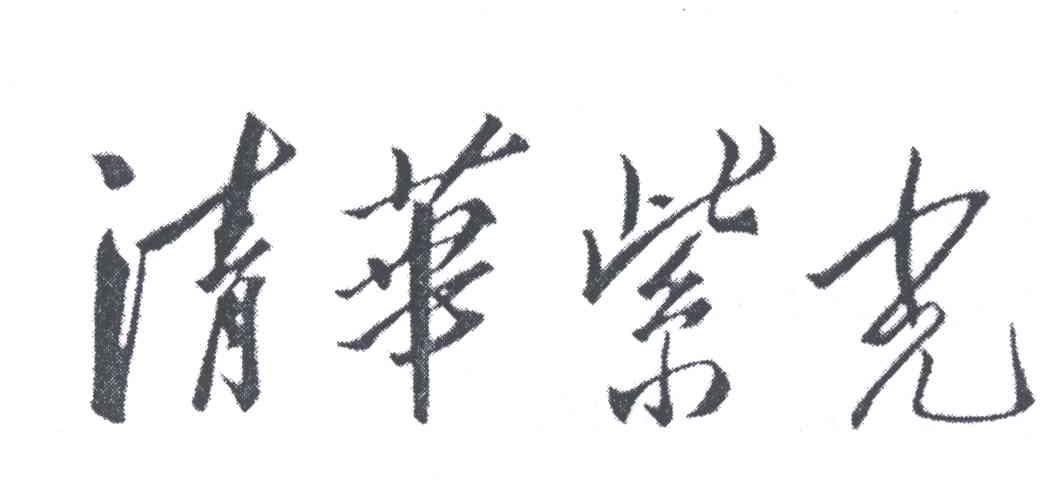 清華紫光